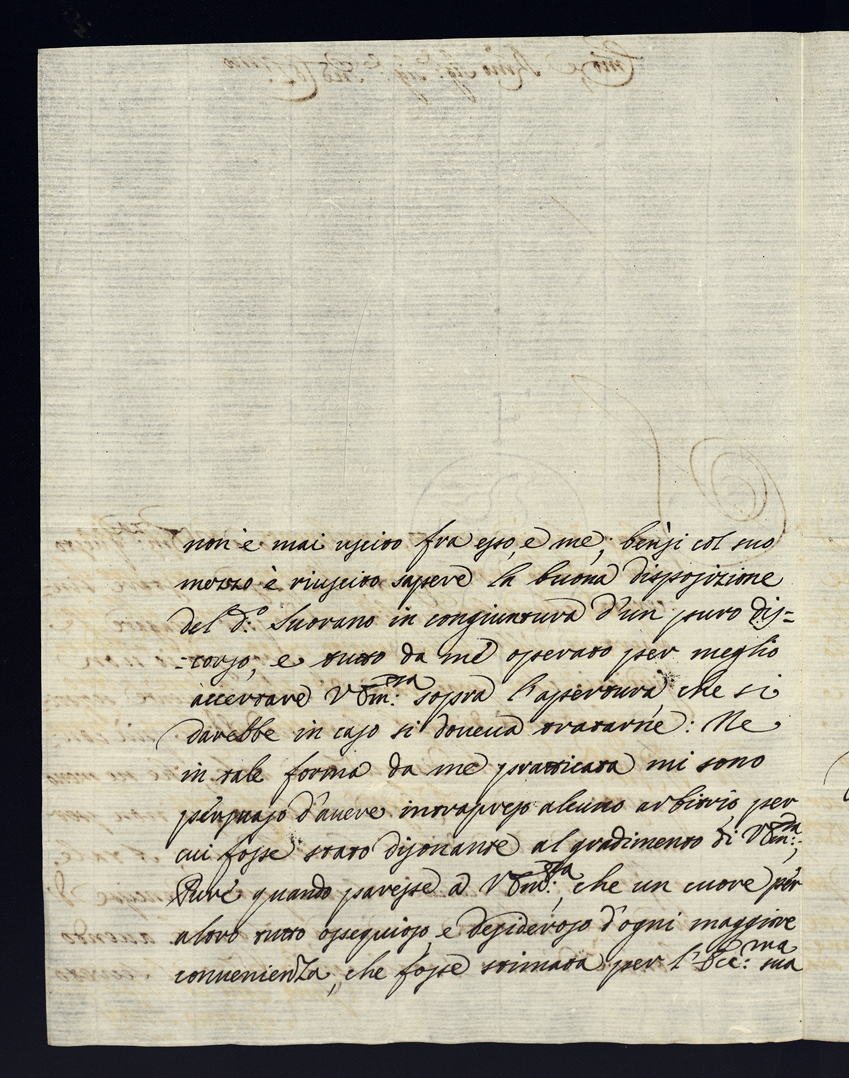 non è mai uscito fra esso, e me, bensi col suo
mezzo è riuscito sapere la buona disposizione
del d.º Suorano in congiuntura d'un puro dis=
=corso, e tutto da me operato per meglio
accertare V Em:za sopra l'apertura, che si
darebbe in caso si doueua tratarne: Ne
in tale forma da me pratticata mi sono
persuaso d'auere intrapreso alcuno arbitrio, per
cui fosse stato disonante al gradimento di V Em:za;
Pure quando paresse a V Em:za, che un cuore per
altro tutto ossequioso, e desideroso d'ogni maggiore
conuenienza, che fosse stimata per l'Ecc:ma sua